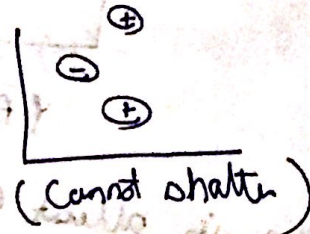 +
-
+
(Cannot shatter)